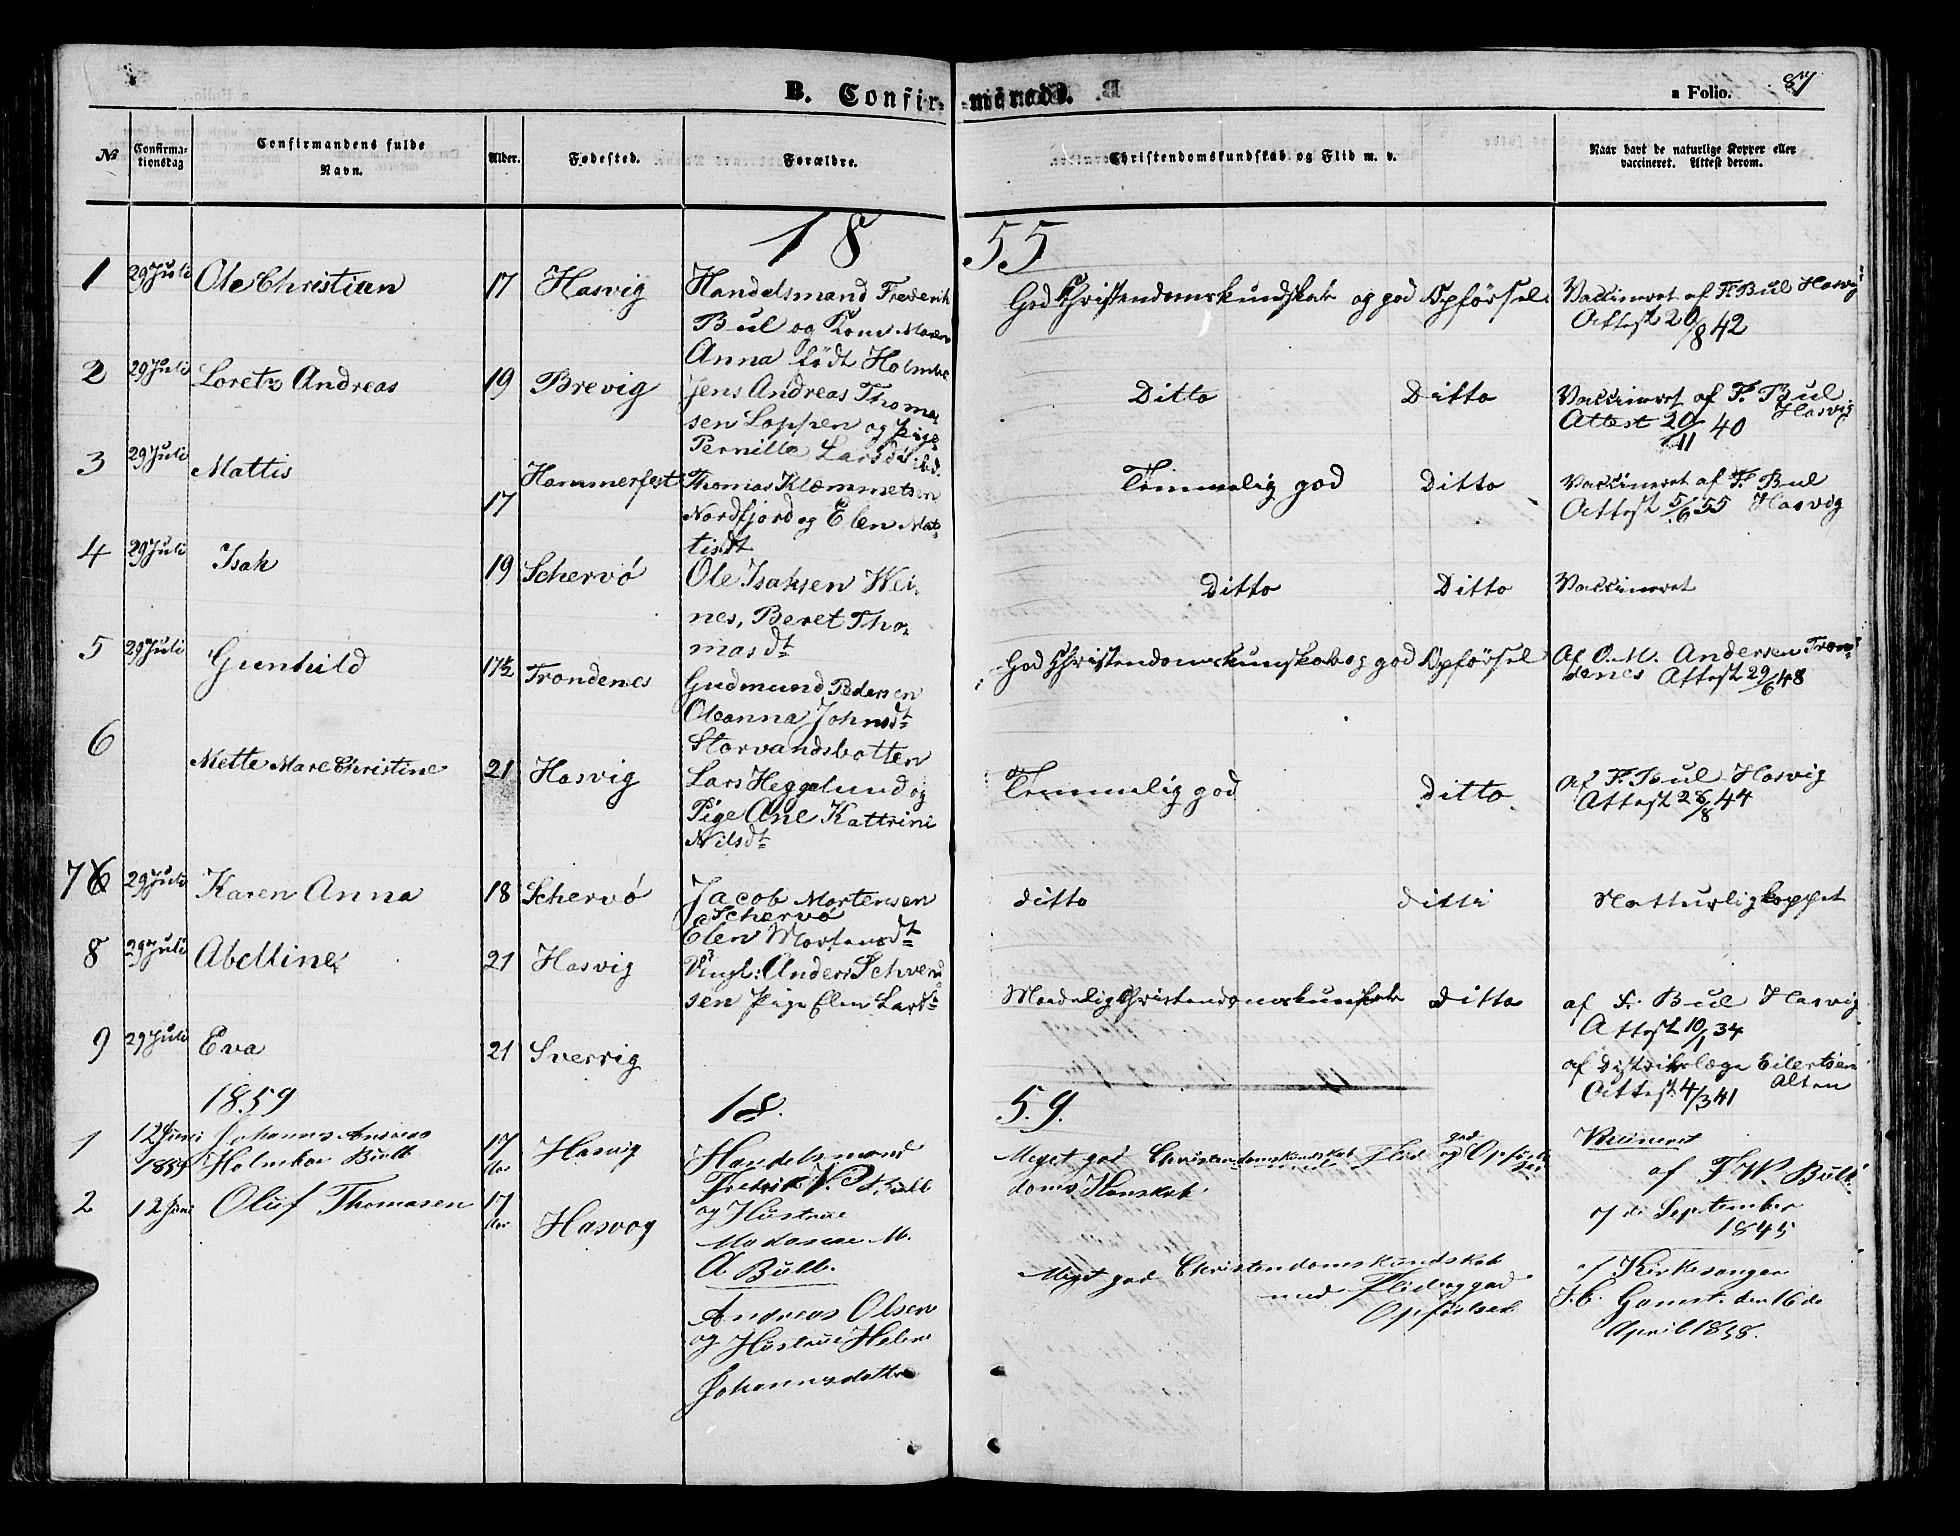 B. Confir-
-merede.
a Folio. 87
№ Confirma-tionsdag Confirmandens fulde Navn. Alder. Fødested. Forældre. Christendomskundskab og Flid m. v. Naar havt de naturlige Kopper eller vaccineret. Attest derom.
18 55
1 29 Juli Ole Christian 17 Hasvig Handelsmand Frederik
Bul og Kone
Anna født Holmbo
God Christendomskundskab og god Opførsel. Vaccineret af F. Bul Hasvig
Attest 20/8 42
2 29 Juli Loretz Andreas 19 Brevig Jens Andreas Thoma-
sen Loppen og Pige
Pernille Larsdt
Ditto Ditto Vaccineret af F. Bul
Hasvig
Attest 20/11 40
3 29 Juli Mattis 17 Hammerfest Thomas Klemmetsen
Nordfjord og Elen Mat-
tisdt
Temmelig god Ditto Vaccineret af F. Bul
Attest 5/6 55 Hasvig
4 29 Juli Isak 19 Schervö Ole Isaksen Wei-
nes, Beret Tho-
masdt
Ditto Ditto Vaccineret
5 29 Juli Gunhild 17½ Trondenes Gudmund Pedersen
Oleanna Johnsdt
Storvandsbotten
God Christendomskunskab og god Opførsel Af O. M. Andersen Tron-
denes Attest 29/6 48
6 Mette Mare Christine 21 Hasvig Lars Heggelund og
Pige Ane Kattrine
Nilsdt
Temmelig god Ditto Af F. Bul Hasvig
Attest 28/8 44
7 29 Juli Karen Anna 18 Schervö Jacob Mortensen
Schervö
Elen Mortensdt
ditto ditto Natturlig koppet
8 29 Juli Abelline 21 Hasvig Ungk: Anders Schven-
sen Pige Elen Larsdt
Maadelig Christendomskunskab ditto af F. Bul Hasvig
Attest 10/1 34
9 29 Juli Eva 21 Sverrig
af Distrikslæge Eilertsen
Alten
Attest 4/3 41
1859 18 59.
1 12 Juni 1859 Johannes Andreas
Holmboe Bull 17 Aar Hasvig Handelsmand
Fredrik W. Bull
og Hustrue
M.
A Bull.
Meget god Christendomskundskab med Flid og god Opførsel
Vaccineret
af F. W. Bull
7de September
1845
2 12 Juni Oluf Thomasen 17 Aar Hasvog
Andreas Olsen
og Hustrue Helene
Johannesdatter
Meget god Christendomskundskab
med Flid og god
Opførlsel
af Kirkesanger
Gamst. den 16de
April 1858.